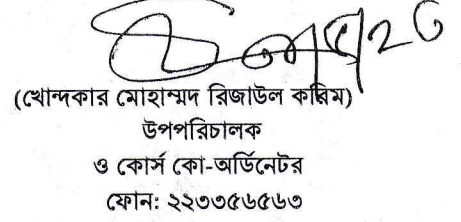 (খোন্দকার মোহাম্মদ রিজাউল করিম)
উপপরিচালক
ও কোর্স কো-অর্ডিনেটর
ফোন: ২২৩৩৫৬৫৬৩